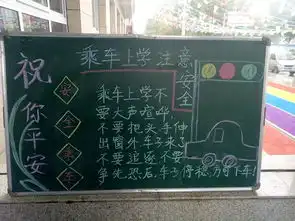 乘车上学注意安全
祝你平安
安全乘车
乘车上学不
要大声喧哗,
不要把头手伸
出窗外车子来了
不要追逐不要
争先恐后,车子停稳方可下车!